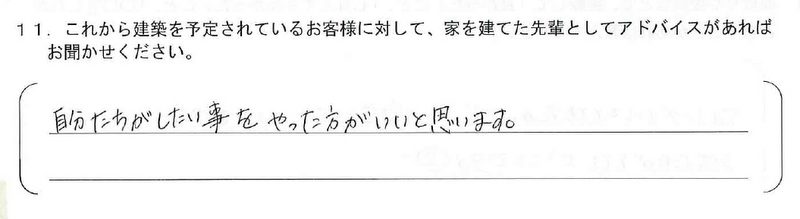 11．これから建築を予定されているお客様に対して、家を建てた先輩としてアドバイスがあれば
お聞かせください。
自分たちがしたい事を やった方がいいと思います。